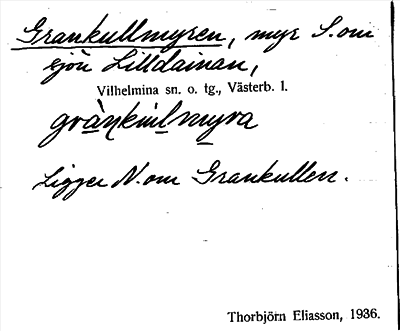 Grankullmyren, myr S. om
sjön Lilldainan,
Vilhelmina sn. o. tg., Västerb. l.
Ligger N. om Grankullen.
Thorbjörn Eliasson, 1936.